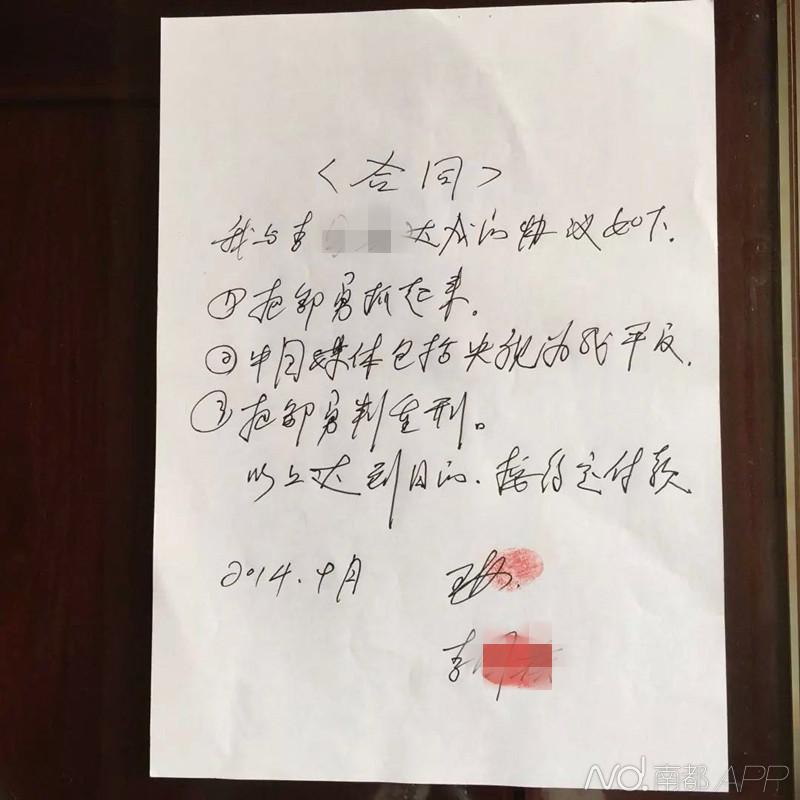 〈合同〉
我与李 达成的协议如下.
①把邹勇抓起来.
②中国媒体包括央视为我平反.
③把邹勇判重刑。
以上达到目的.按约定付款.
2014.9月 王林.
李
Nd.南都APP